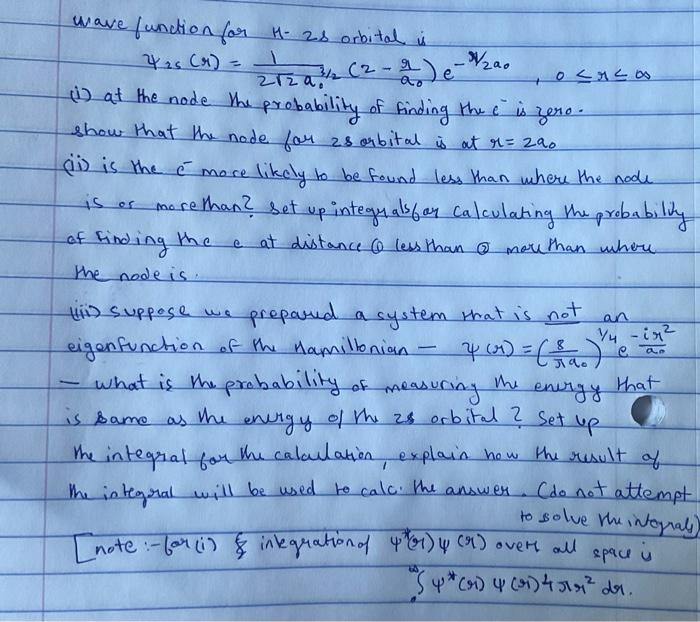 wave function for H- 2s orbital is
ψ2s (r) = 1/(2√2 a₀^3/2) (2 - r/a₀) e^-r/2a₀ , 0 ≤ r ≤ ∞
(i) at the node the probability of finding the e⁻ is zero.
show that the node for 2s orbital is at r = 2a₀
(ii) is the e⁻ more likely to be found less than where the node
is or more than? Set up integrals for calculating the probability
of finding the e at distance ① less than ② more than where
the node is.
(iii) suppose we prepared a system that is not an
eigenfunction of the Hamiltonian — ψ(r) = (8/πa₀)^1/4 e^-ir²/a₀
— what is the probability of measuring the energy that
is same as the energy of the 2s orbital? Set up
the integral for the calculation, explain how the result of
the integral will be used to calc. the answer. (do not attempt
to solve the integrals)
[note :- for (i) & integration of ψ*(r) ψ(r) over all space is
∞∫ ψ*(r) ψ(r) 4πr² dr.